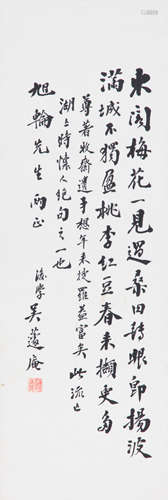 東閣梅花一見遲桑田轉眼即揚波
滿城不獨盈桃李紅豆春來擷更多
尊著牧齋遺事想年來搜羅益富矣此流亡
湖上時懷人絕句之一也
旭輪先生兩正
後學吳蘧庵